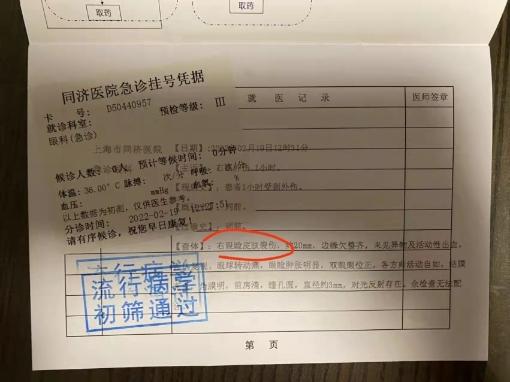 取药
取药
同济医院急诊挂号凭据
卡 号: D50440957 预检等级: III
就诊科室:
眼科(急诊)
候诊人数: 0人 预计等候时间: 0分钟
体温: 36.00°C 脉搏: 次/分 呼吸:
mmHg
以上数据为初测,仅供医生参考。
分诊时间: 2022-02-19 12:27:51
请有序候诊,祝您早日康复!
就 医 记 录
医师签章
上海市同济医院 【日期】
【查体】: 右眼睑皮肤裂伤, 约20mm, 边缘欠整齐, 未见异物及活动性出血,
眼球转动痛, 眼睑肿胀明显, 双眼眼位正, 各方向活动自如, 结膜
角膜明, 前房清, 瞳孔圆, 直径约3mm, 对光反射存在, 余检查无法配
流行病学
初筛通过
第 页